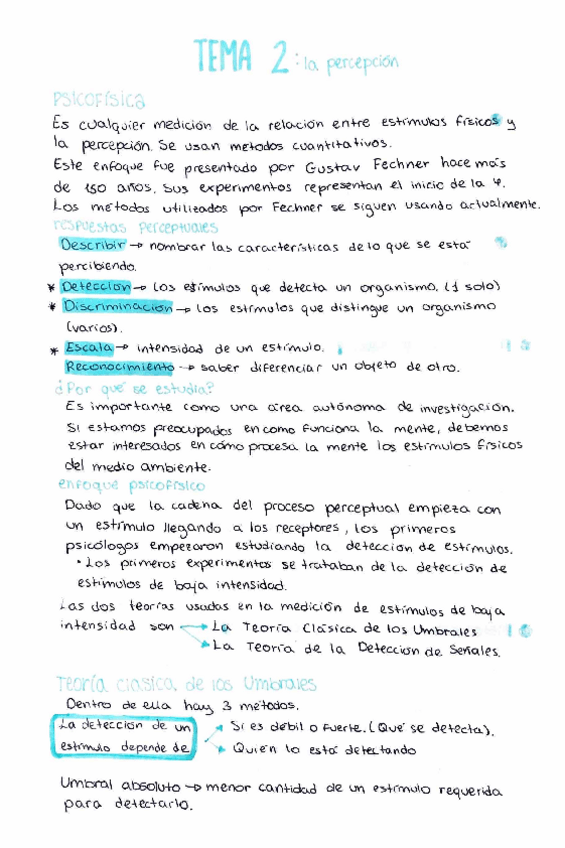 TEMA 2: la percepción
PSICOFÍSICA
Es cualquier medición de la relación entre estímulos físicos y
la percepción. Se usan metodos cuantitativos.
Este enfoque fue presentado por Gustav Fechner hace más
de 150 años. Sus experimentos representan el inicio de la Ψ.
Los métodos utilizados por Fechner se siguen usando actualmente.
respuestas perceptuales
Describir → nombrar las características de lo que se está
percibiendo.
* Detección → los estímulos que detecta un organismo. (1 solo)
* Discriminación → los estímulos que distingue un organismo
(varios).
* Escala → intensidad de un estímulo.
Reconocimiento → saber diferenciar un objeto de otro.
¿Por qué se estudia?
Es importante como una área autónoma de investigación.
Si estamos preocupados en como funciona la mente, debemos
estar interesados en cómo procesa la mente los estímulos físicos
del medio ambiente.
enfoque psicofísico
Dado que la cadena del proceso perceptual empieza con
un estímulo llegando a los receptores, los primeros
psicólogos empezaron estudiando la detección de estímulos.
• Los primeros experimentos se trataban de la detección de
estímulos de baja intensidad.
Las dos teorías usadas en la medición de estímulos de baja
intensidad son → La Teoría Clásica de los Umbrales
→ La Teoría de la Detección de Señales.
Teoría clasica de los Umbrales
Dentro de ella hay 3 metodos.
La detección de un → Si es débil o fuerte. (Qué se detecta).
estímulo depende de → Quién lo está detectando
Umbral absoluto → menor cantidad de un estímulo requerida
para detectarlo.